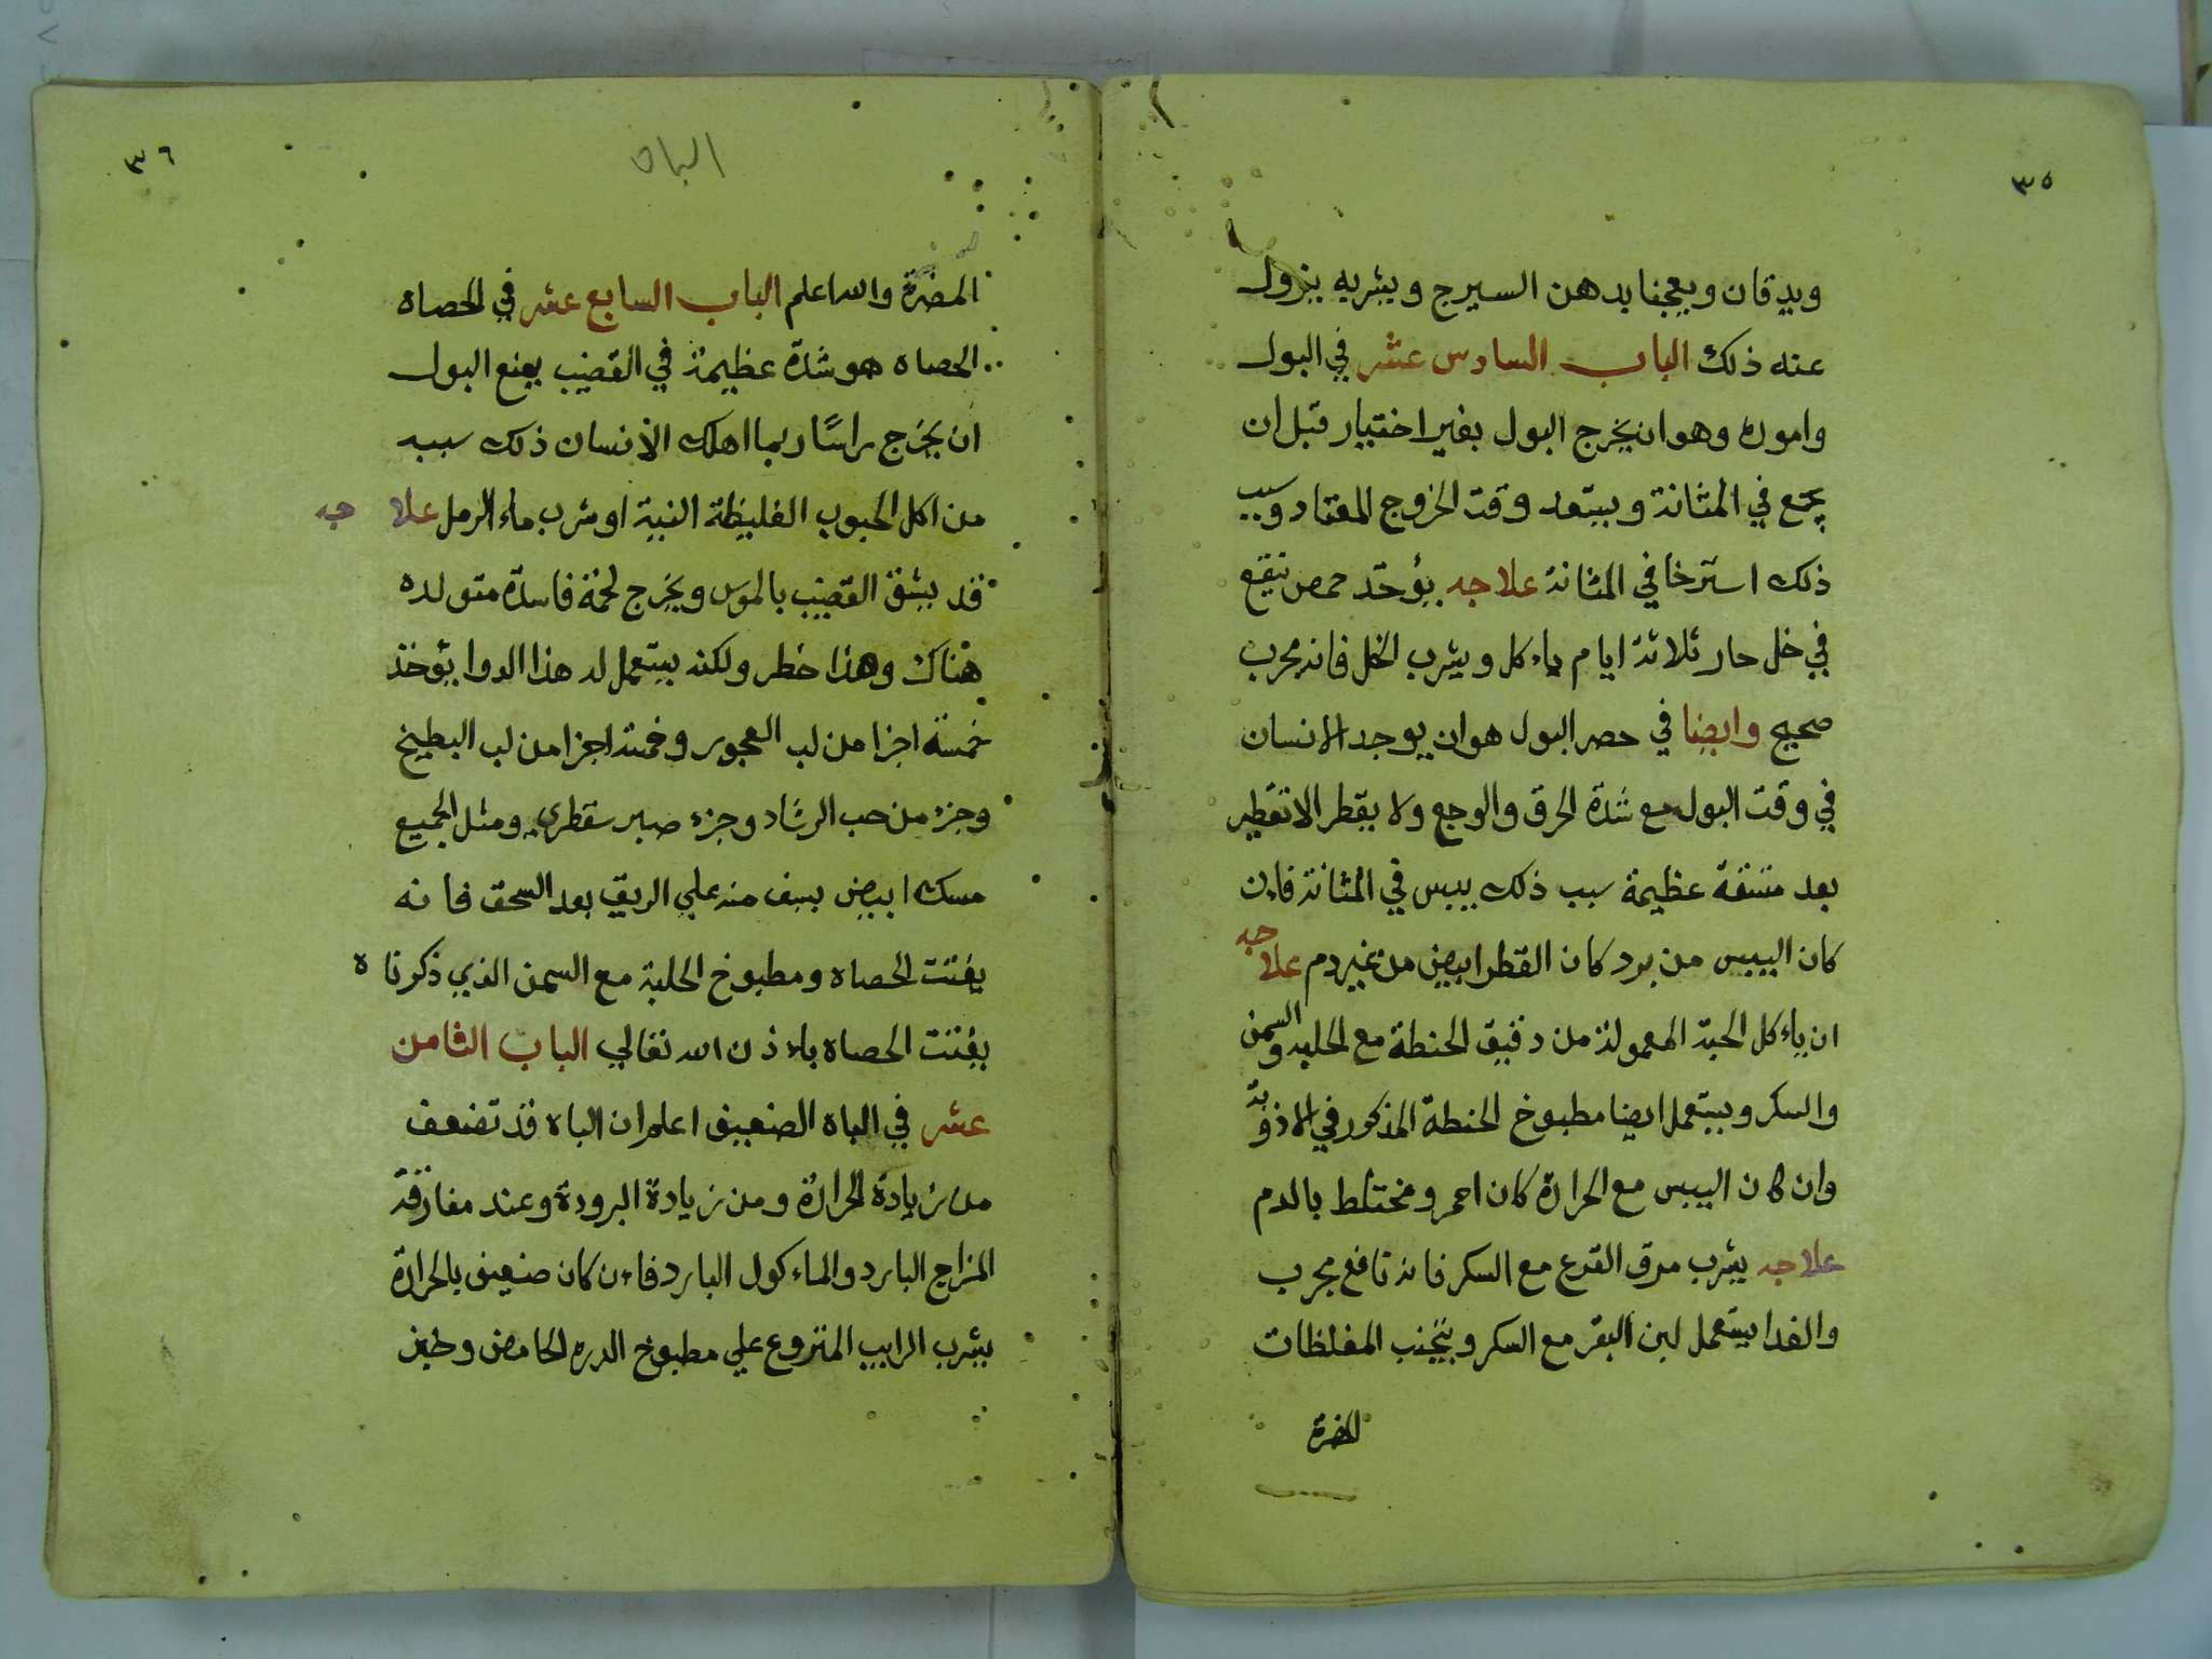 ٣٥
ويدقان ويعجنا بدهن السيرج ويشربه يزول
عنه ذلك الباب السادس عشر في البول
واموره وهو ان يخرج البول بغير اختيار قبل ان
يجمع في المثانة ويبتعد وقت الخروج المعتاد وسبب
ذلك استرخا في المثانة علاجه يؤخد حمص نقيع
في خل حار ثلاثة ايام ياءكل ويشرب الخل فانه مجرب
صحيح وايضا في حصر البول هو ان يوجد الانسان
في وقت البول مع شدة الحرق والوجع ولا يقطر الا تقطير
بعد مشقة عظيمة سبب ذلك يبس في المثانة فاءن
كان اليبس من برد كان القطر ابيض من غير دم علاجه
ان ياءكل الحبة المعمولة من دقيق الحنطة مع الحلبه والسمن
والسكر ويستعمل ايضا مطبوخ الحنطة المذكور في الاذوية
وان كان اليبس مع الحرارة كان احمر ومختلط بالدم
علاجه يشرب مرق القرع مع السكر فانه نافع مجرب
والغدا يستعمل لبن البقر مع السكر ويتجنب المغلظات
المضرة
٣٦
الباه
المضرة والله اعلم الباب السابع عشر في الحصاه
الحصاه هو شدة عظيمة في القضيب يمنع البول
ان يخرج راسًا ربما اهلك الانسان ذلك سببه
من اكل الحبوب الغليظة النية او شرب ماء الرمل علاجه
قد يشق القضيب بالموس ويخرج لحمة فاسدة متولده
هناك وهذا خطر ولكنه يستعمل له هذا الدوا يؤخذ
خمسة اجزا من لب العجور وخمسة اجزا من لب البطيخ
وجزء من حب الرشاد وجزء صبر سقطري ومثل الجميع
مسك ابيض يسف منه علي الريق بعد السحق فانه
يفتت الحصاه ومطبوخ الحلبة مع السمن الذي ذكرناه
يفتت الحصاه باءذن الله تعالي الباب الثامن
عشر في الباه الضعيف اعلم ان الباه قد تضعف
من زيادة الحرارة ومن زيادة البرودة وعند مفارقة
المزاج البارد والماءكول البارد فاءن كان ضعيف بالحرارة
يشرب الرايب المنزوع علي مطبوخ الدره الحامض وخبز